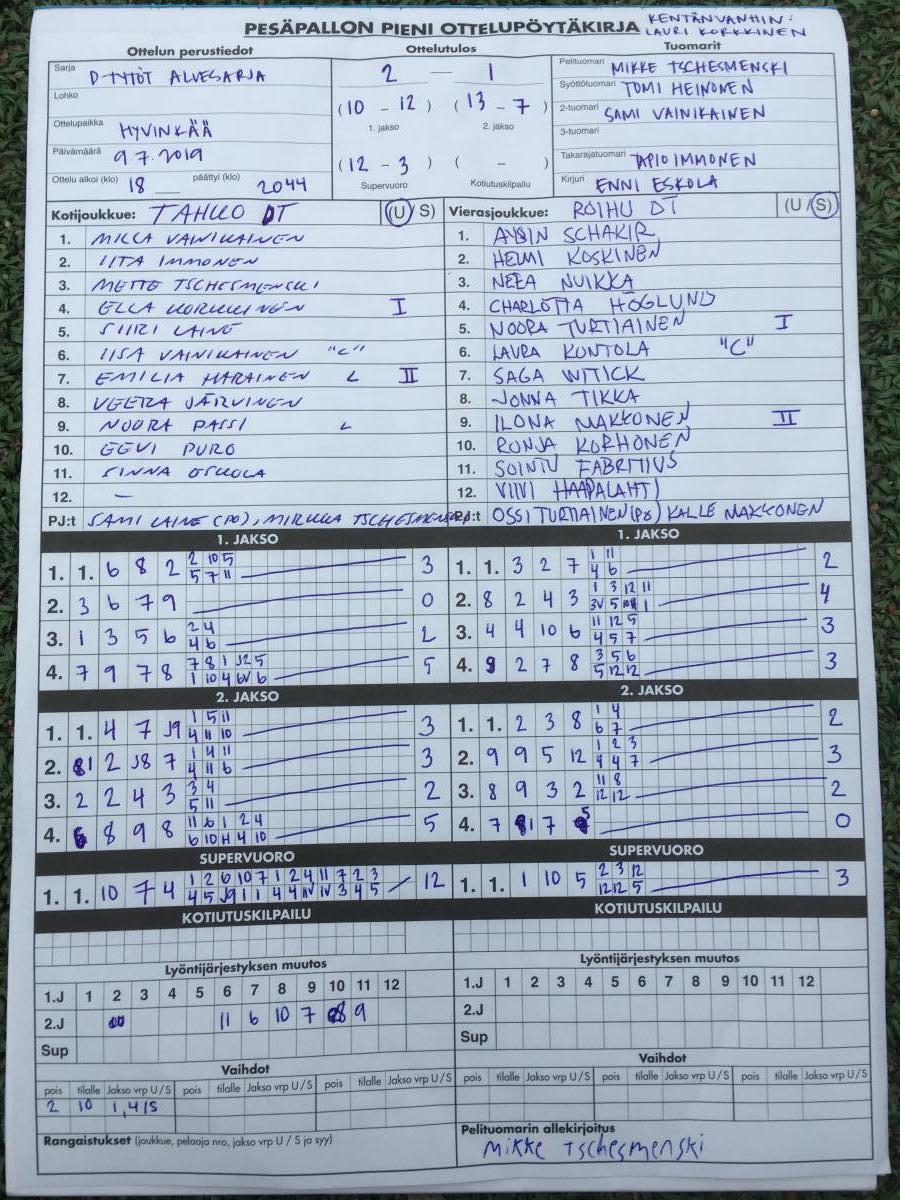 PESÄPALLON PIENI OTTELUPÖYTÄKIRJA KENTÄNVANHIN: LAURI KORKKINEN
Ottelun perustiedot Ottelutulos Tuomarit
Sarja D-TYTÖT ALUESARJA 2 — 1 Pelituomari MIKKE TSCHESMENSKI
Lohko (10 - 12) (13 - 7) Syöttötuomari TOMI HEINONEN
1. jakso 2. jakso 2-tuomari SAMI VAINIKAINEN
Ottelupaikka HYVINKÄÄ 3-tuomari
Päivämäärä 9.7.2019 (12 - 3) ( - ) Takarajatuomari TAPIO IMMONEN
Ottelu alkoi (klo) 18 päättyi (klo) 2044 Supervuoro Kotiutuskilpailu Kirjuri ENNI ESKOLA
Kotijoukkue: TAHKO DT (U/S) Vierasjoukkue: ROIHU DT (U/S)
1. MILLA VAINIKAINEN 1. AYSIN SCHAKIR
2. IITA IMMONEN 2. HELMI KOSKINEN
3. METTE TSCHESMENSKI 3. NEEA NUIKKA
4. ELLA KORKKINEN I 4. CHARLOTTA HÖGLUND
5. SIIRI LAINE 5. NOORA TURTIAINEN I
6. IISA VAINIKAINEN "C" 6. LAURA KONTOLA "C"
7. EMILIA HARAINEN L II 7. SAGA WITICK
8. VEERA JÄRVINEN 8. JONNA TIKKA
9. NOORA PASSI L 9. ILONA MAKKONEN II
10. EEVI PURO 10. RONJA KORHONEN
11. SINNA ESKOLA 11. SOINTU FABRITIUS
12. — 12. VIIVI HAAPALAHTI
PJ:t SAMI LAINE (PO), MIRKKA TSCHESMENSKI PJ:t OSSI TURTIAINEN (PJ) KALLE MAKKONEN
1. JAKSO 1. JAKSO
2 10 5 1 11
1. 1. 6 8 2 5 7 11 3 1. 1. 3 2 7 4 6 2
1 3 12 11
2. 3 6 7 9 0 2. 8 2 4 3 3V 5 1 4
2 4 11 12 5
3. 1 3 5 6 4 6 2 3. 4 4 10 6 4 5 7 3
7 8 1 J2 5 3 5 6
4. 7 9 7 8 1 10 4 6V 6 5 4. 9 2 7 8 5 12 12 3
2. JAKSO 2. JAKSO
1 5 11 1 4
1. 1. 4 7 J9 4 11 10 3 1. 1. 2 3 8 6 7 2
1 4 11 1 2 3
2. 1 2 J8 7 4 11 6 3 2. 9 9 5 12 4 4 7 3
3 4 11 8
3. 2 2 4 3 5 11 2 3. 8 9 3 2 12 12 2
11 6 1 2 4
4. 6 8 9 8 6 10H 4 10 5 4. 7 1 7 5 0
SUPERVUORO SUPERVUORO
1 2 6 10 7 1 2 4 11 7 2 3 2 3 12
1. 1. 10 7 4 4 5 J9 1 1 4 4 1V 1V 3 4 5 12 1. 1. 1 10 5 12 12 5 3
KOTIUTUSKILPAILU KOTIUTUSKILPAILU
Lyöntijärjestyksen muutos Lyöntijärjestyksen muutos
1.J 1 2 3 4 5 6 7 8 9 10 11 12 1.J 1 2 3 4 5 6 7 8 9 10 11 12
2.J 11 6 10 7 8 9 2.J
Sup Sup
Vaihdot Vaihdot
pois tilalle Jakso vrp U/S pois tilalle Jakso vrp U/S pois tilalle Jakso vrp U/S pois tilalle Jakso vrp U/S pois tilalle Jakso vrp U/S pois tilalle Jakso vrp U/S
2 10 1,4/S
Rangaistukset (joukkue, pelaaja nro, jakso vrp U / S ja syy) Pelituomarin allekirjoitus
Mikke Tschesmenski